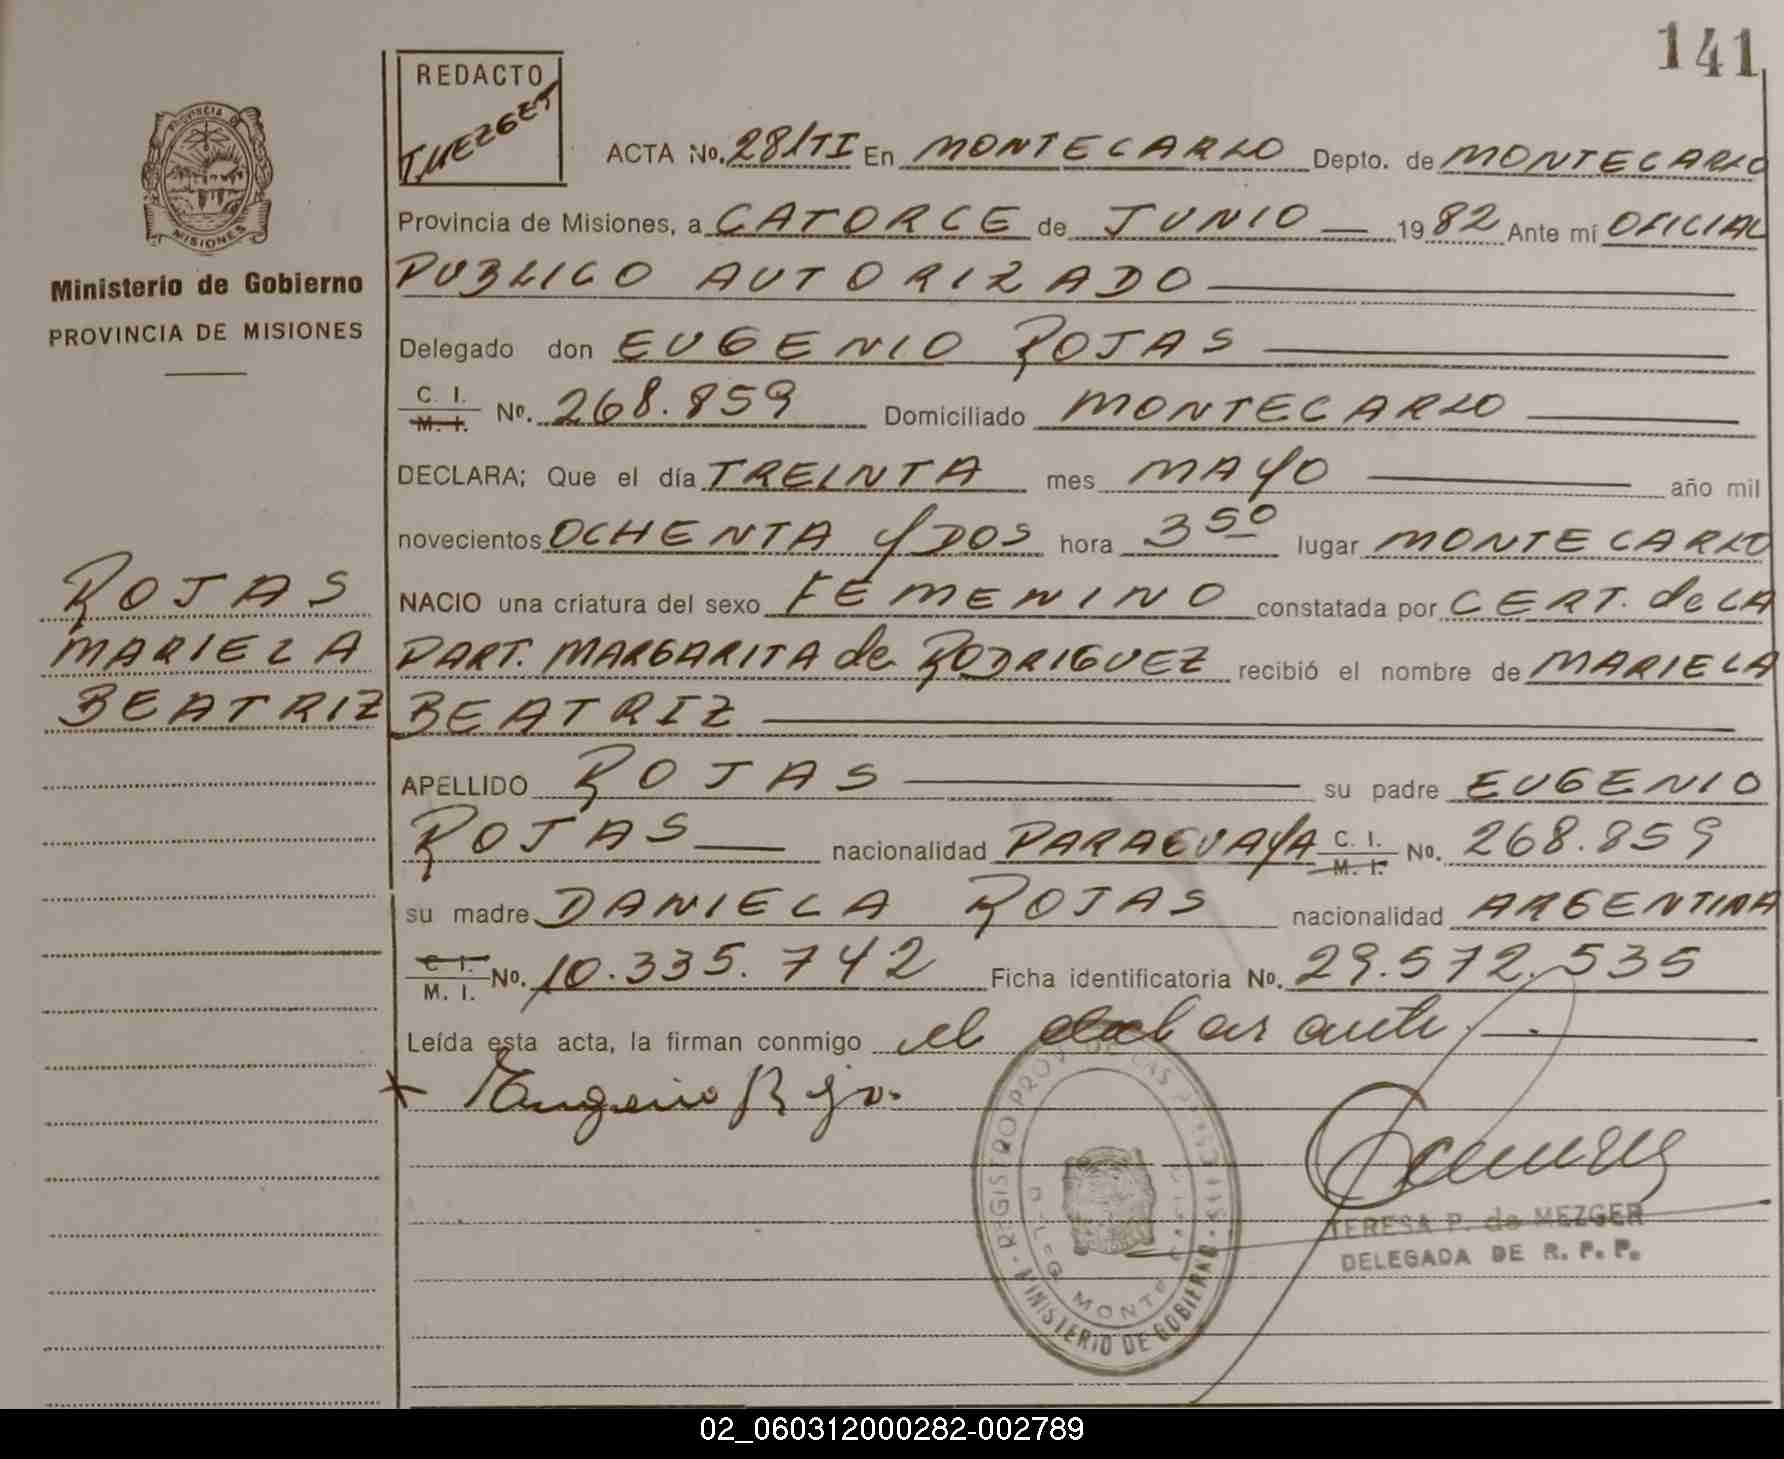 141
REDACTO
T.MEZGER
PROVINCIA DE
MISIONES
Ministerio de Gobierno
PROVINCIA DE MISIONES
ACTA No. 281TI En MONTECARLO Depto. de MONTECARLO
Provincia de Misiones, a CATORCE de JUNIO 1982 Ante mí OFICIAL
PUBLICO AUTORIZADO
Delegado don EUGENIO ROJAS
C. I.
M. I. No. 268.859 Domiciliado MONTECARLO
DECLARA; Que el día TREINTA mes MAYO año mil
novecientos OCHENTA y DOS hora 3 50 lugar MONTECARLO
NACIO una criatura del sexo FEMENINO constatada por CERT. de LA
PART. MARGARITA de RODRIGUEZ recibió el nombre de MARIELA
BEATRIZ
ROJAS
MARIELA
BEATRIZ
APELLIDO ROJAS su padre EUGENIO
ROJAS nacionalidad PARAGUAYA C. I. M. I. No. 268.859
su madre DANIELA ROJAS nacionalidad ARGENTINA
C. I.
M. I. No. 10.335.742 Ficha identificatoria No. 29.572.535
Leída esta acta, la firman conmigo el declarante
x Eugenio Rojas
REGISTRO PROV. DE LAS PERSONAS
MINISTERIO DE GOBIERNO
TERESA P. de MEZGER
DELEGADA DE R. P. P.
02_060312000282-002789